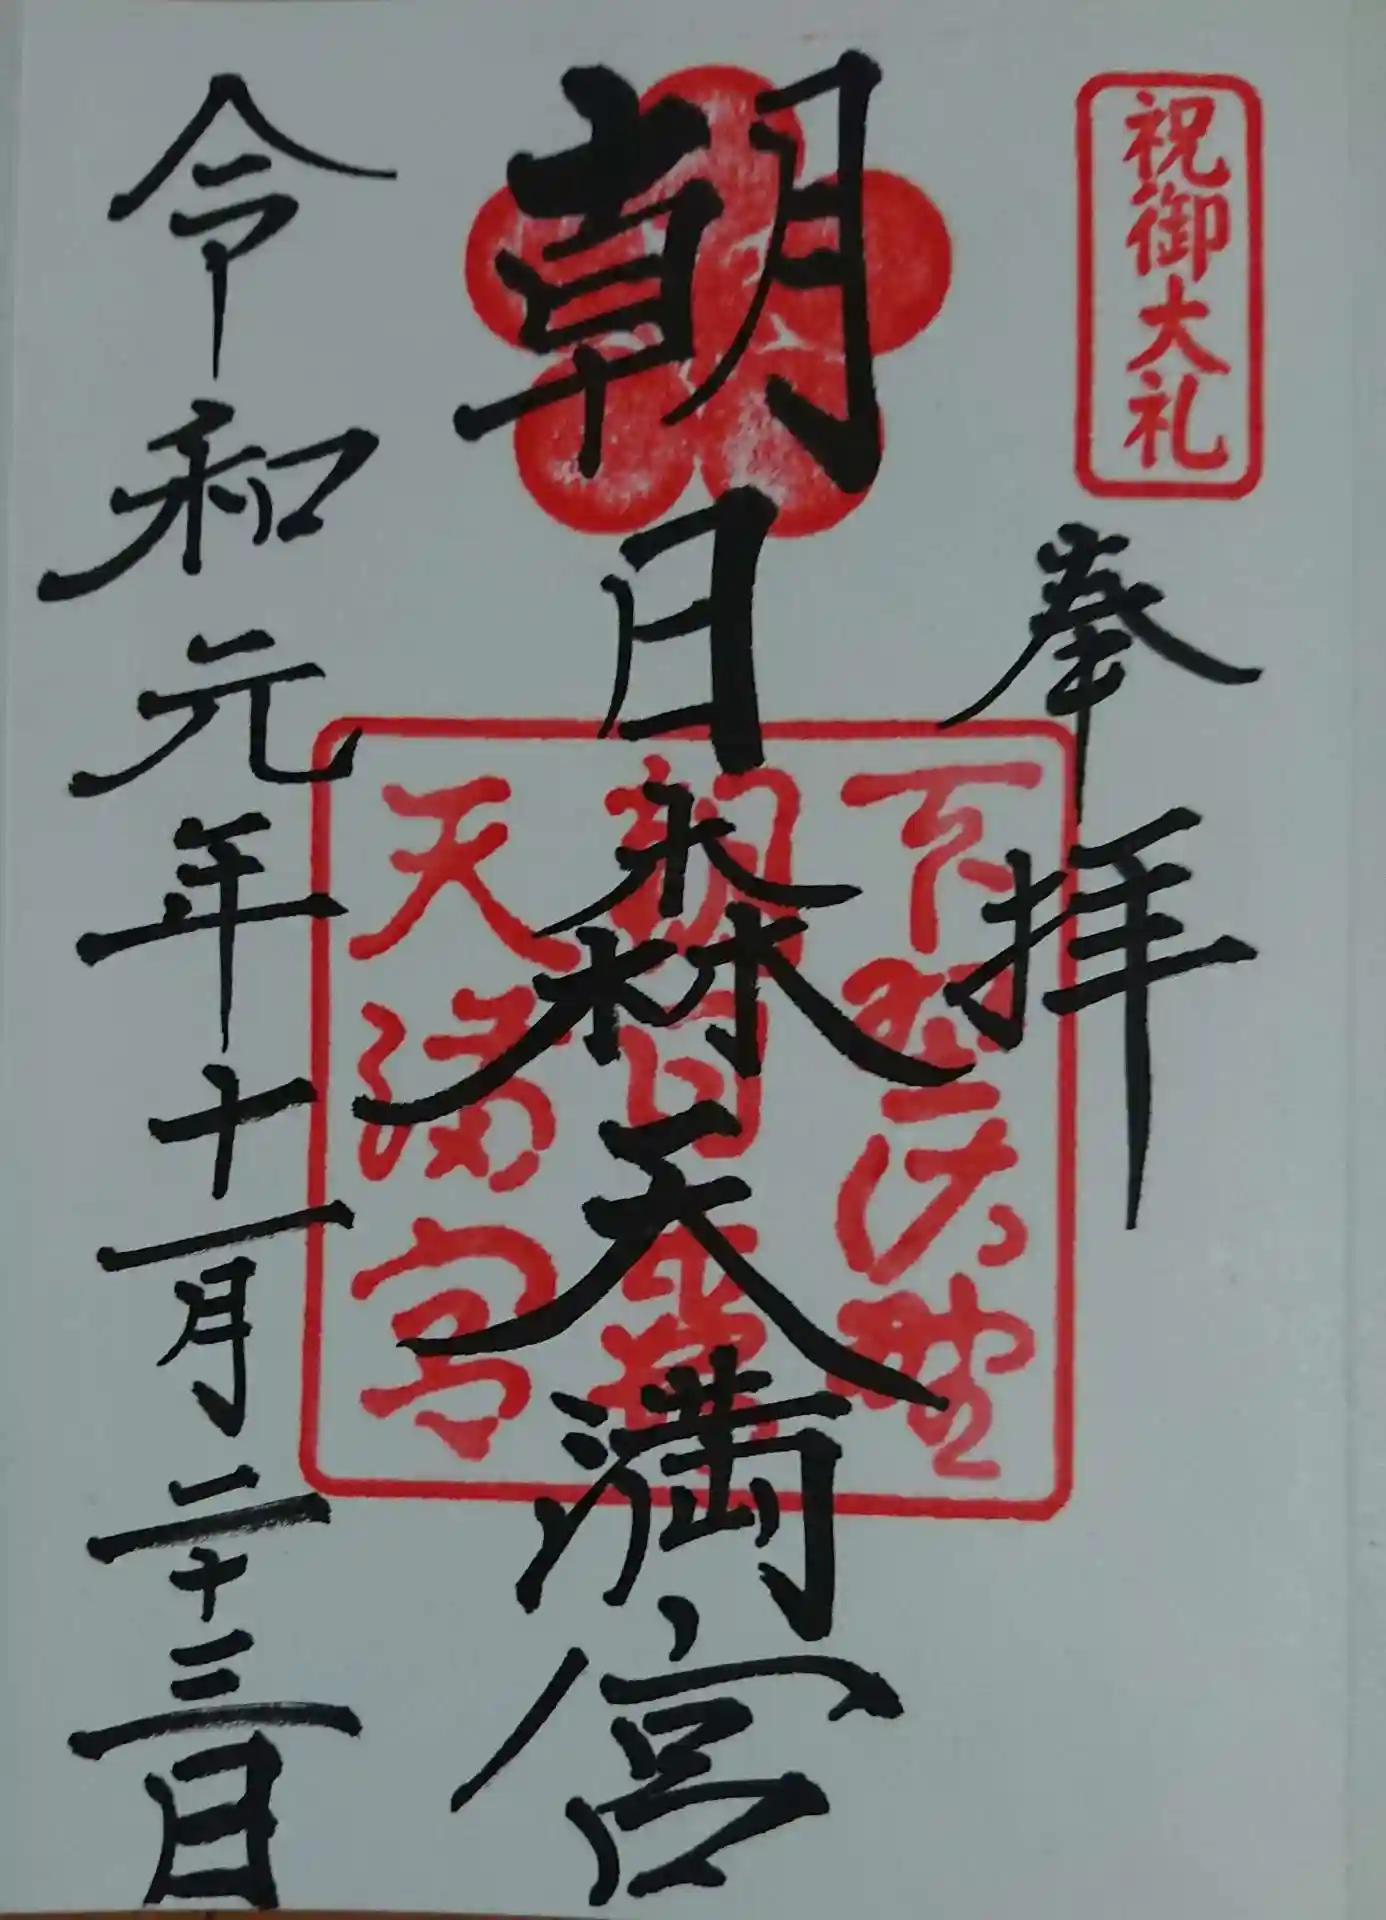 祝御大礼
奉拝
朝日森天満宮
下野佐野
朝日森
天満宮
令和元年十一月二十三日